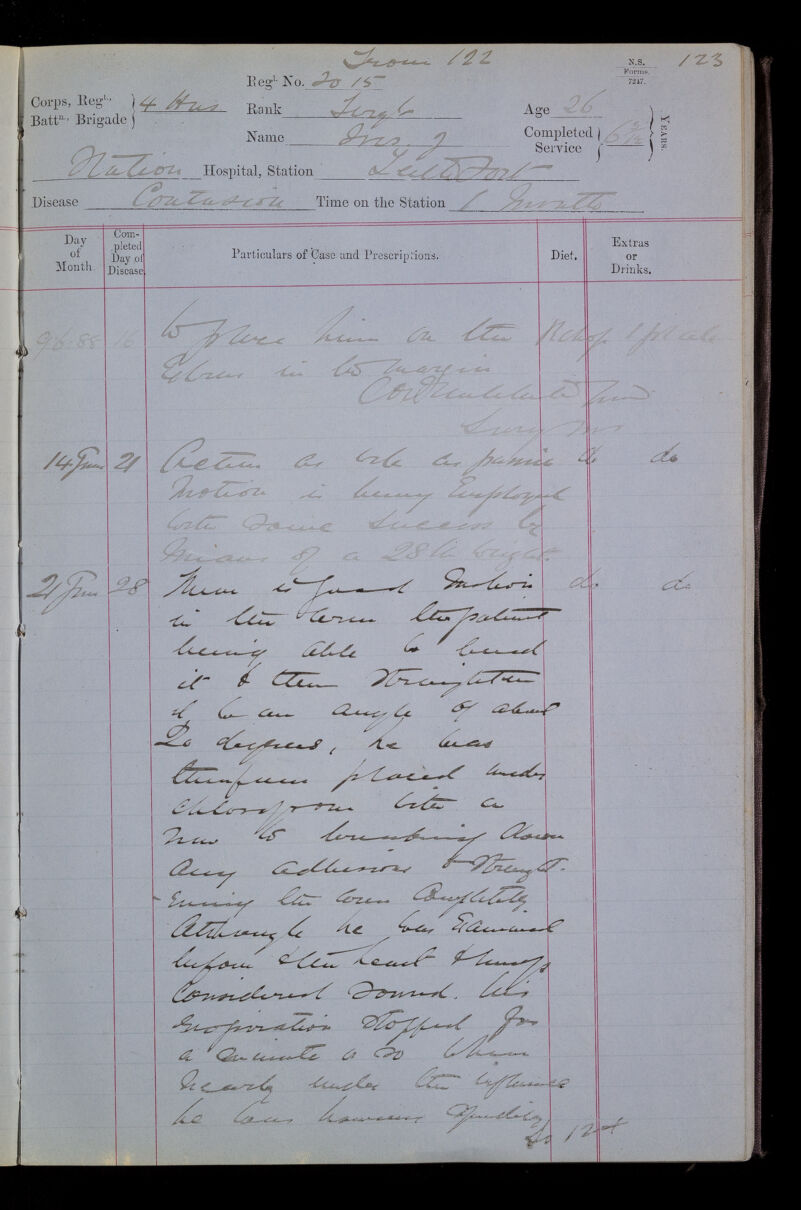 From 122
N.S.
Forms.
7217.
123
Regt. No. 2015
Corps, Regt.,
Battn., Brigade
4 Hus
Rank
Age 26
Name
Completed
Service
6
YEARS.
Station Hospital, Station
Disease Contusion Time on the Station 1 Month
Day
of
Month
Com-
pleted
Day of
Disease.
Particulars of Case and Prescriptions.
Diet.
Extras
or
Drinks.
9.6.88 16 to place him on the
Extras in the margin
Surg MS
14 June 21 do do
Motion is being Employed
with some success by
Means of a 28 lb weight.
21 June 28 There is good Motion do do
in the arm the patient
being able to bend
it & then straighten
it to an angle of about
20 degrees, he was
therefore placed under
chloroform with a
view to breaking down
any adhesions & straight-
-ening the arm Completely
Although he was Examined
before & the heart & lungs
Considered sound. his
respiration stopped for
a minute or so when
nearly under the influence
he was however speedily
to 124